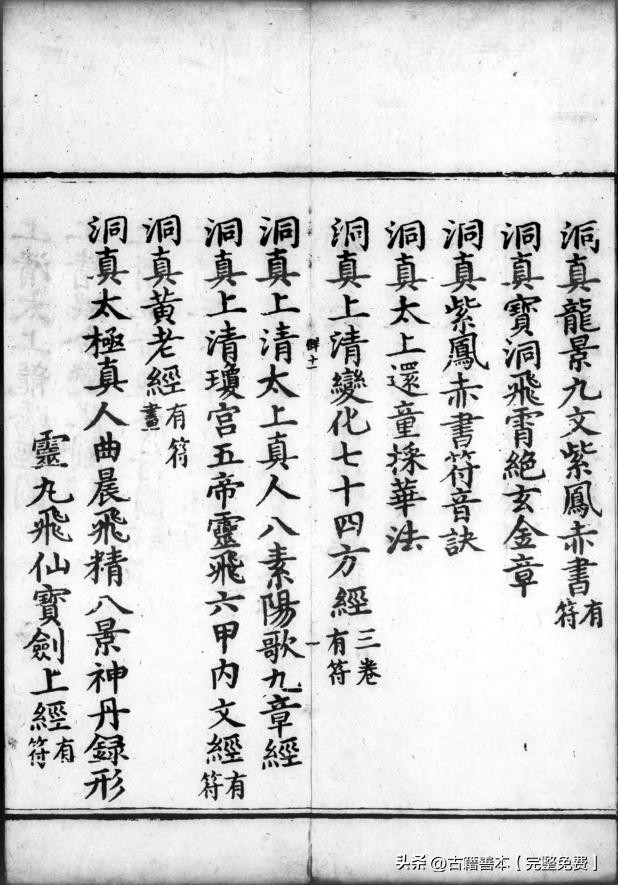 洞真龍景九文紫鳳赤書有符
洞真寶洞飛霄絕玄金章
洞真紫鳳赤書符音訣
洞真太上還童採華法
洞真上清變化七十四方經三卷有符
群十
一
洞真上清太上真人八素陽歌九章經
洞真上清瓊宮五帝靈飛六甲內文經有符
洞真黃老經有符畫
洞真太極真人曲晨飛精八景神丹録形
靈九飛仙寶劍上經有符
头条 @古籍善本【完整免费】